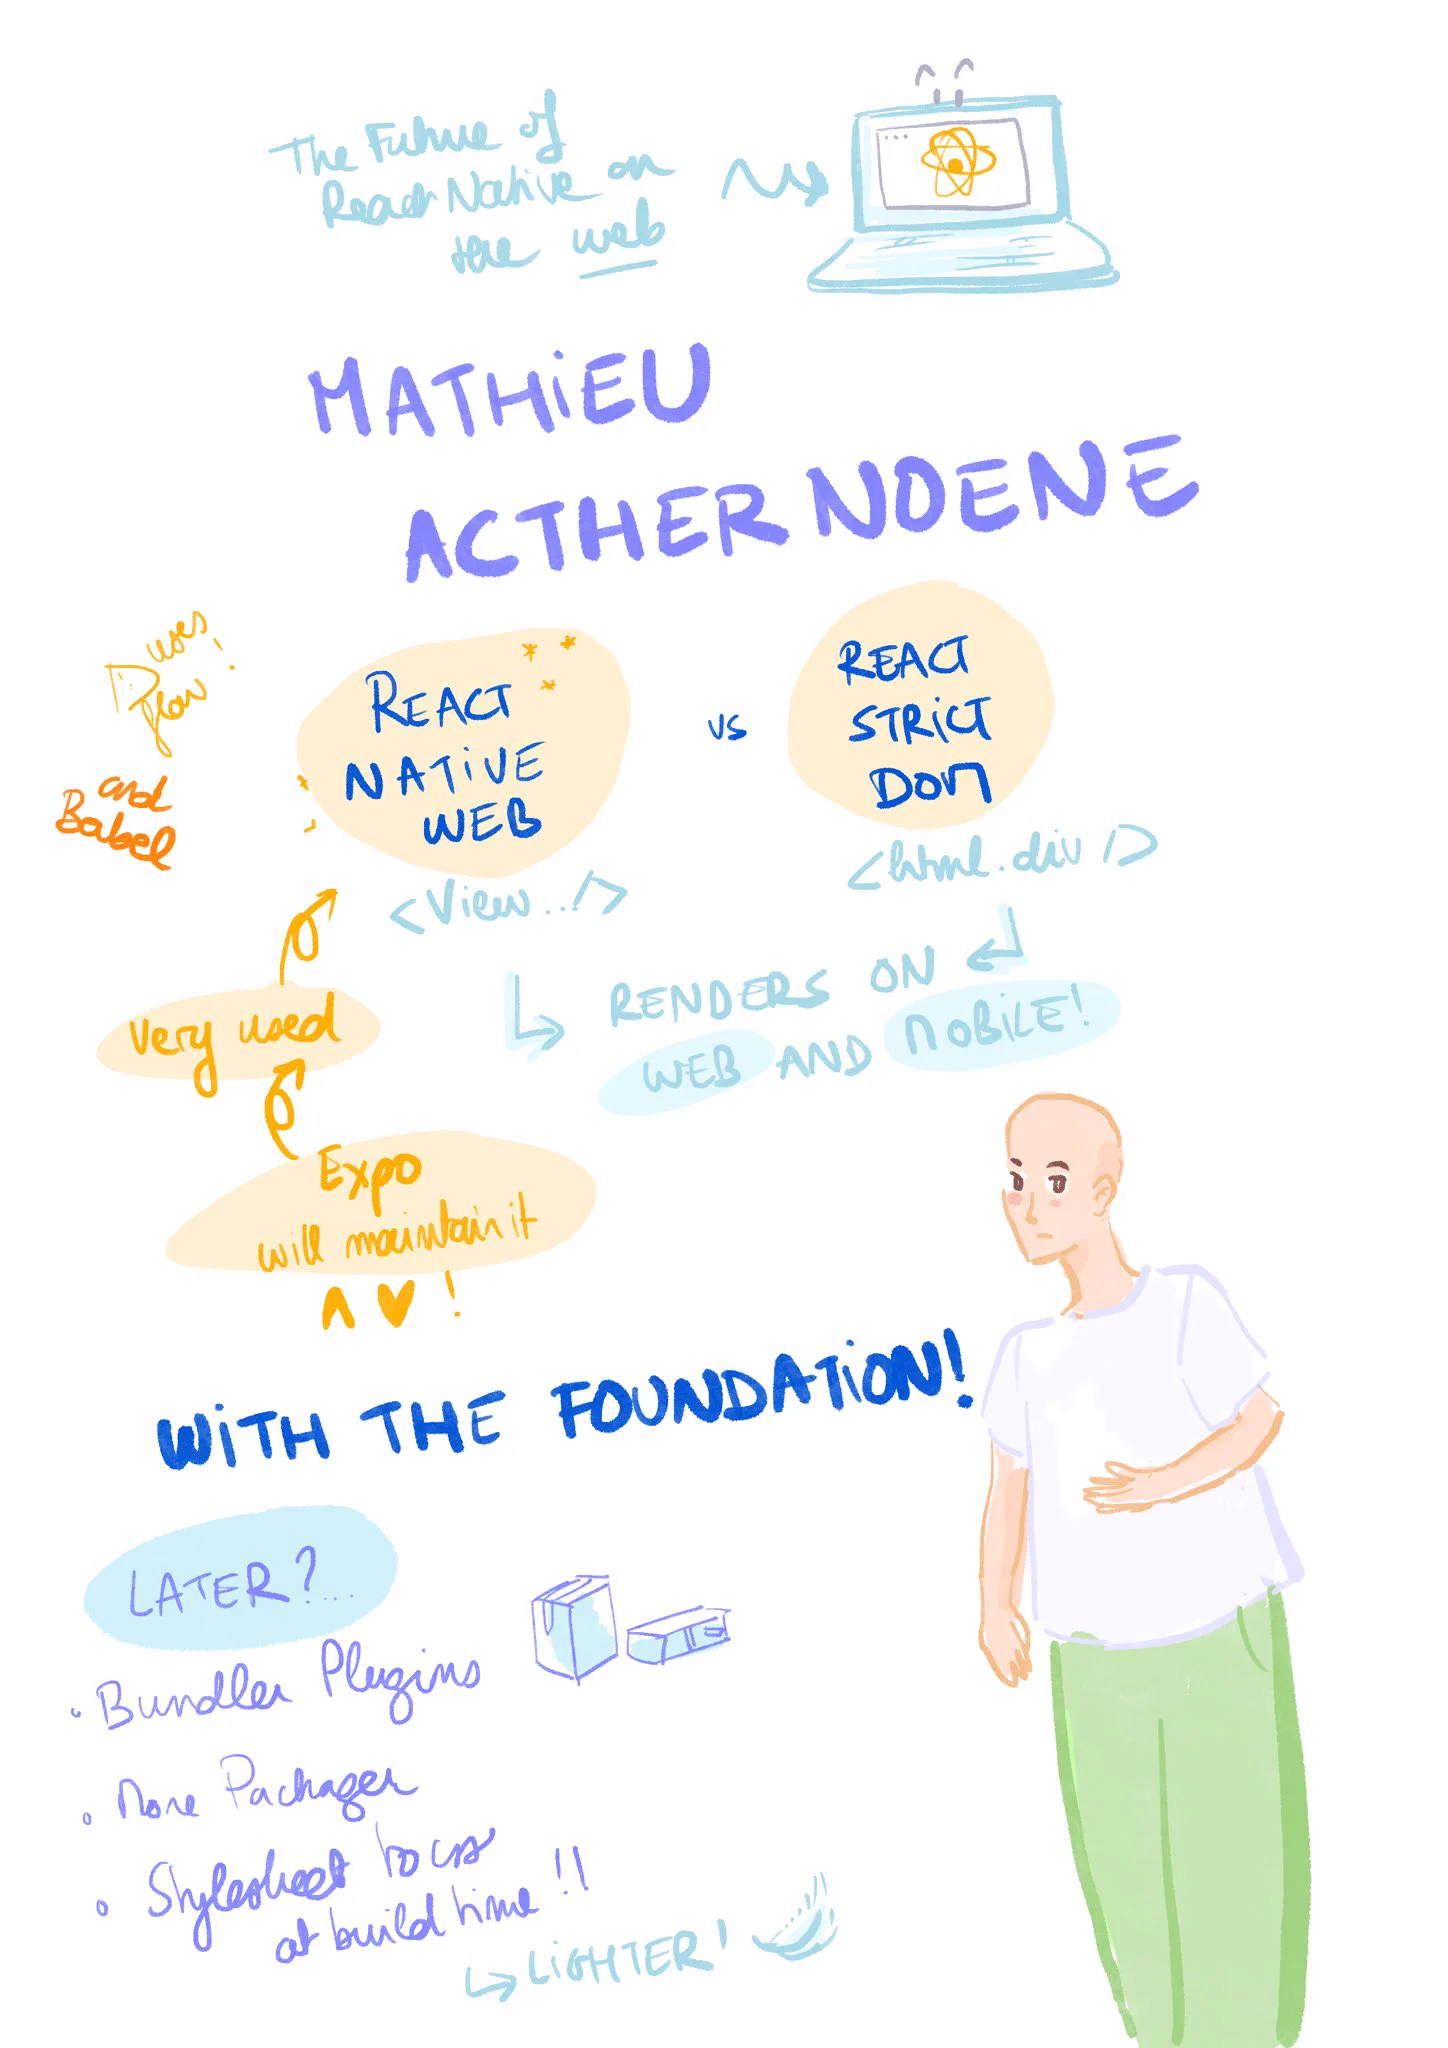 The Future of
React Native on
the web
MATHiEU
ACTHERNOENE
uses
flow!
and
Babel
REACT
NATiVE
WEB
vs
REACT
STRiCT
DOM
<View../>
<html.div/>
RENDERS ON
WEB AND MOBiLE!
very used
Expo
will maintain it
!
WiTH THE FOUNDATiON!
LATER?...
Bundler Plugins
More Packager
Stylesheet to css
at build time!!
LiGHTER!